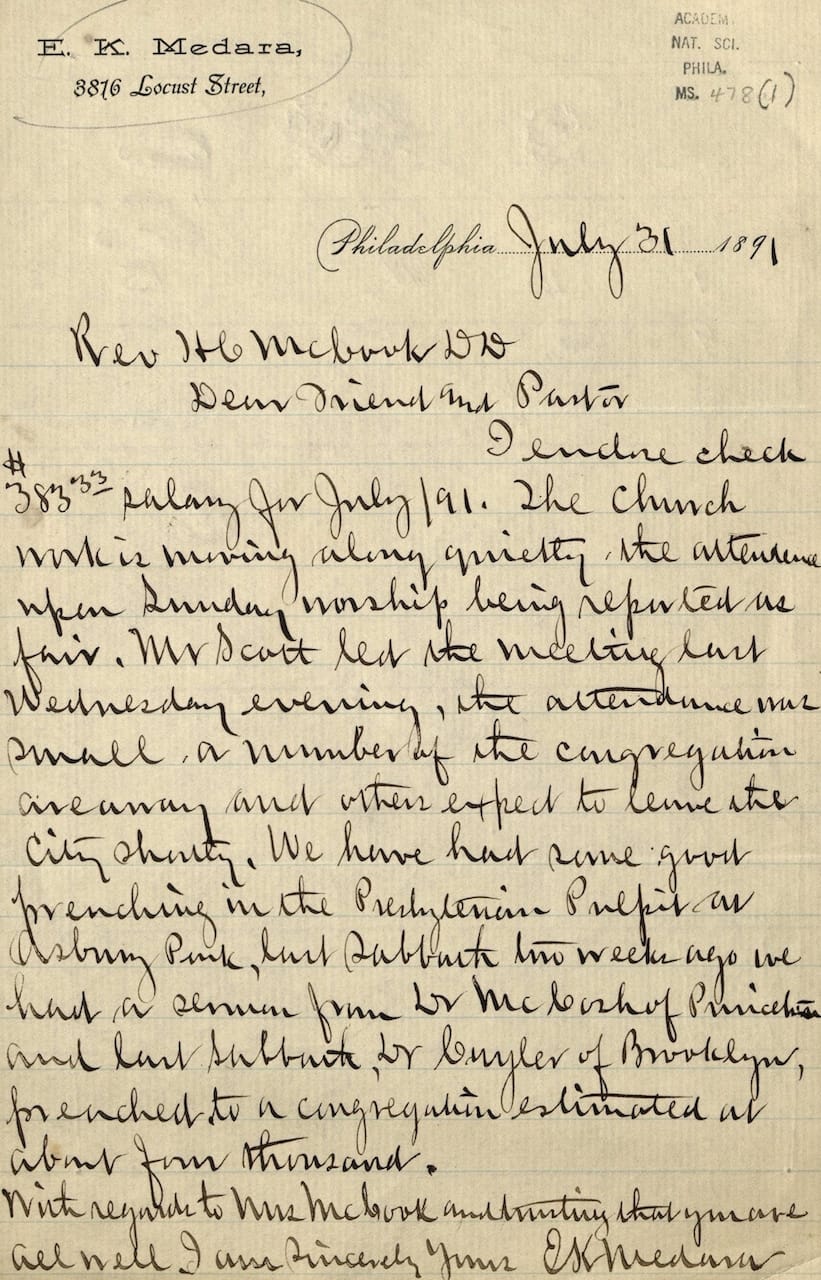 E. K. Medara,
3816 Locust Street,
ACADEM.
NAT. SCI.
PHILA.
MS. 478(1)
Philadelphia July 31 1891
Rev H C McCook DD
Dear Friend and Pastor
I endose check
# 383 33 salary for July /91. The Church
work is moving along quietly, the attendence
upon Sunday worship being reported as
fair. Mr Scott led the meeting last
Wednesday evening, the attendance was
small, a number of the congregation
are away and others expect to leave the
City shortly. We have had some good
preaching in the Presbyterian Pulpit at
Asbury Park, last Sabbath two weeks ago we
had a sermon from Dr McCosh of Princeton
and last Sabbath, Dr Cuyler of Brooklyn,
preached to a congregation estimated at
about four thousand.
With regards to Mrs McCook and trusting that you are
all well I am Sincerely Yours E K Medara